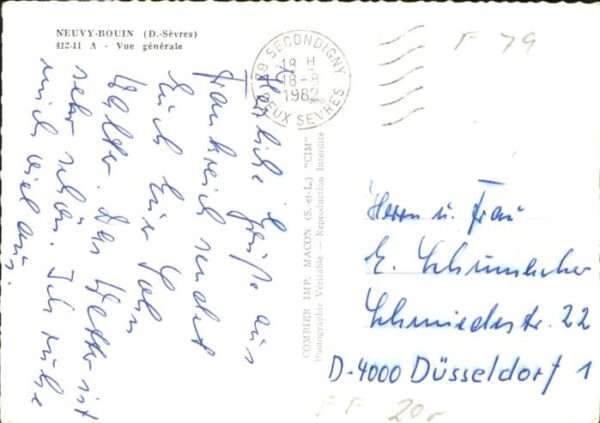 NEUVY-BOUIN (D.-Sèvres)
412-11 A - Vue générale
79 SECONDIGNY
18 H
18-8
1982
DEUX SEVRES
F 79
Herzliche Grüße aus
Frankreich sendet
Euch Euer Sohn
Walter. Das Wetter ist
sehr schön. Ich ruhe
mich viel aus.
COMBIER IMP. MACON (S.-et-L.) "CIM"
Photographie Véritable - Reproduction Interdite
Herrn u. Frau
E. Schumacher
Schmiedestr. 22
D-4000 Düsseldorf 1
FF 20